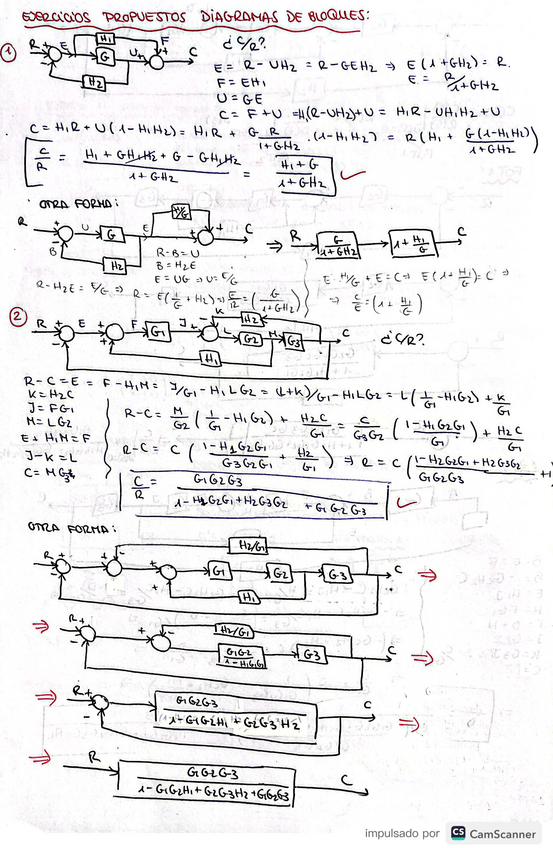 EJERCICIOS PROPUESTOS DIAGRAMAS DE BLOQUES:
① R + E H1 F + G U + C - H2
¿C/R?
E = R - UH2 = R - GEH2 ⇒ E(1+GH2) = R.
F = EH1 E = R/1+GH2
U = GE
C = F + U = H1(R-UH2)+U = H1R - UH1H2 + U
C = H1R + U(1-H1H2) = H1R + G R/1+GH2 · (1-H1H2) = R(H1 + G(1-H1H2)/1+GH2)
C/R = H1 + GH1H2 + G - GH1H2 / 1+GH2 = H1+G / 1+GH2
OTRA FORMA:
R + U G E H1/G + + C - B H2 ⇒ R G/1+GH2 1+H1/G C
R-B=U
B=H2E
E=UG ⇒ U=E/G
R-H2E = E/G ⇒ R = E(1/G + H2) ⇒ E/R = (G/1+GH2)
E·H1/G + E = C ⇒ E(1+H1/G) = C ⇒
⇒ C/E = (1+H1/G)
② R + E + F G1 J + K H2 L G2 M G3 C - + H1
¿C/R?
R-C=E = F-H1M = J/G1 - H1LG2 = (L+K)/G1 - H1LG2 = L(1/G1 - H1G2) + K/G1
K=H2C
J=FG1
M=LG2
E+H1M=F
J-K=L
C=MG3
R-C = M/G2 (1/G1 - H1G2) + H2C/G1 = C/G3G2 (1-H1G2G1/G1) + H2C/G1
R-C = C (1-H1G2G1/G3G2G1 + H2/G1) ⇒ R = C (1-H1G2G1+H2G3G2/G1G2G3 +1
C/R = G1G2G3 / 1-H1G2G1+H2G3G2+G1G2G3
OTRA FORMA:
R + - + - H2/G1 + + G1 G2 G3 H1 C ⇒
⇒ R + - + - H2/G1 G1G2/1-H1G1G2 G3 C ⇒
⇒ R + - G1G2G3 / 1-G1G2H1+G2G3H2 C ⇒
⇒ R G1G2G3 / 1-G1G2H1+G2G3H2+G1G2G3 C
impulsado por CS CamScanner